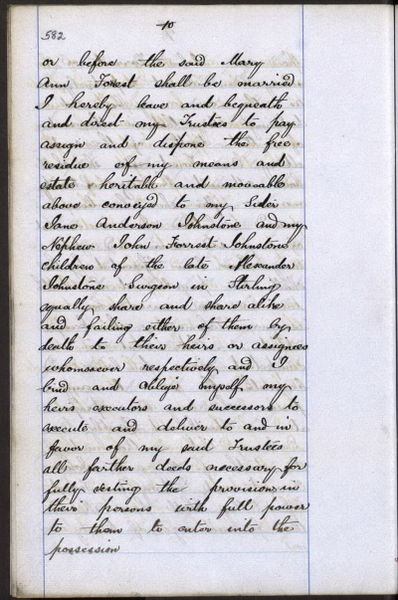 582
10
or before the said Mary
Ann Forest shall be married
I hereby leave and bequeath
and direct my Trustees to pay
assign and dispone the free
residue of my means and
estate heritable and moveable
above conveyed to my Sister
Jane Anderson Johnstone and my
Nephew John Forrest Johnstone
children of the late Alexander
Johnstone Surgeon in Stirling
equally share and share alike
and failing either of them by
death to their heirs or assignees
whomsoever respectively and I
bind and oblige myself my
heirs executors and successors to
execute and deliver to and in
favor of my said Trustees
all farther deeds necessary for
fully vesting the provision in
their persons with full power
to them to enter into the
possession